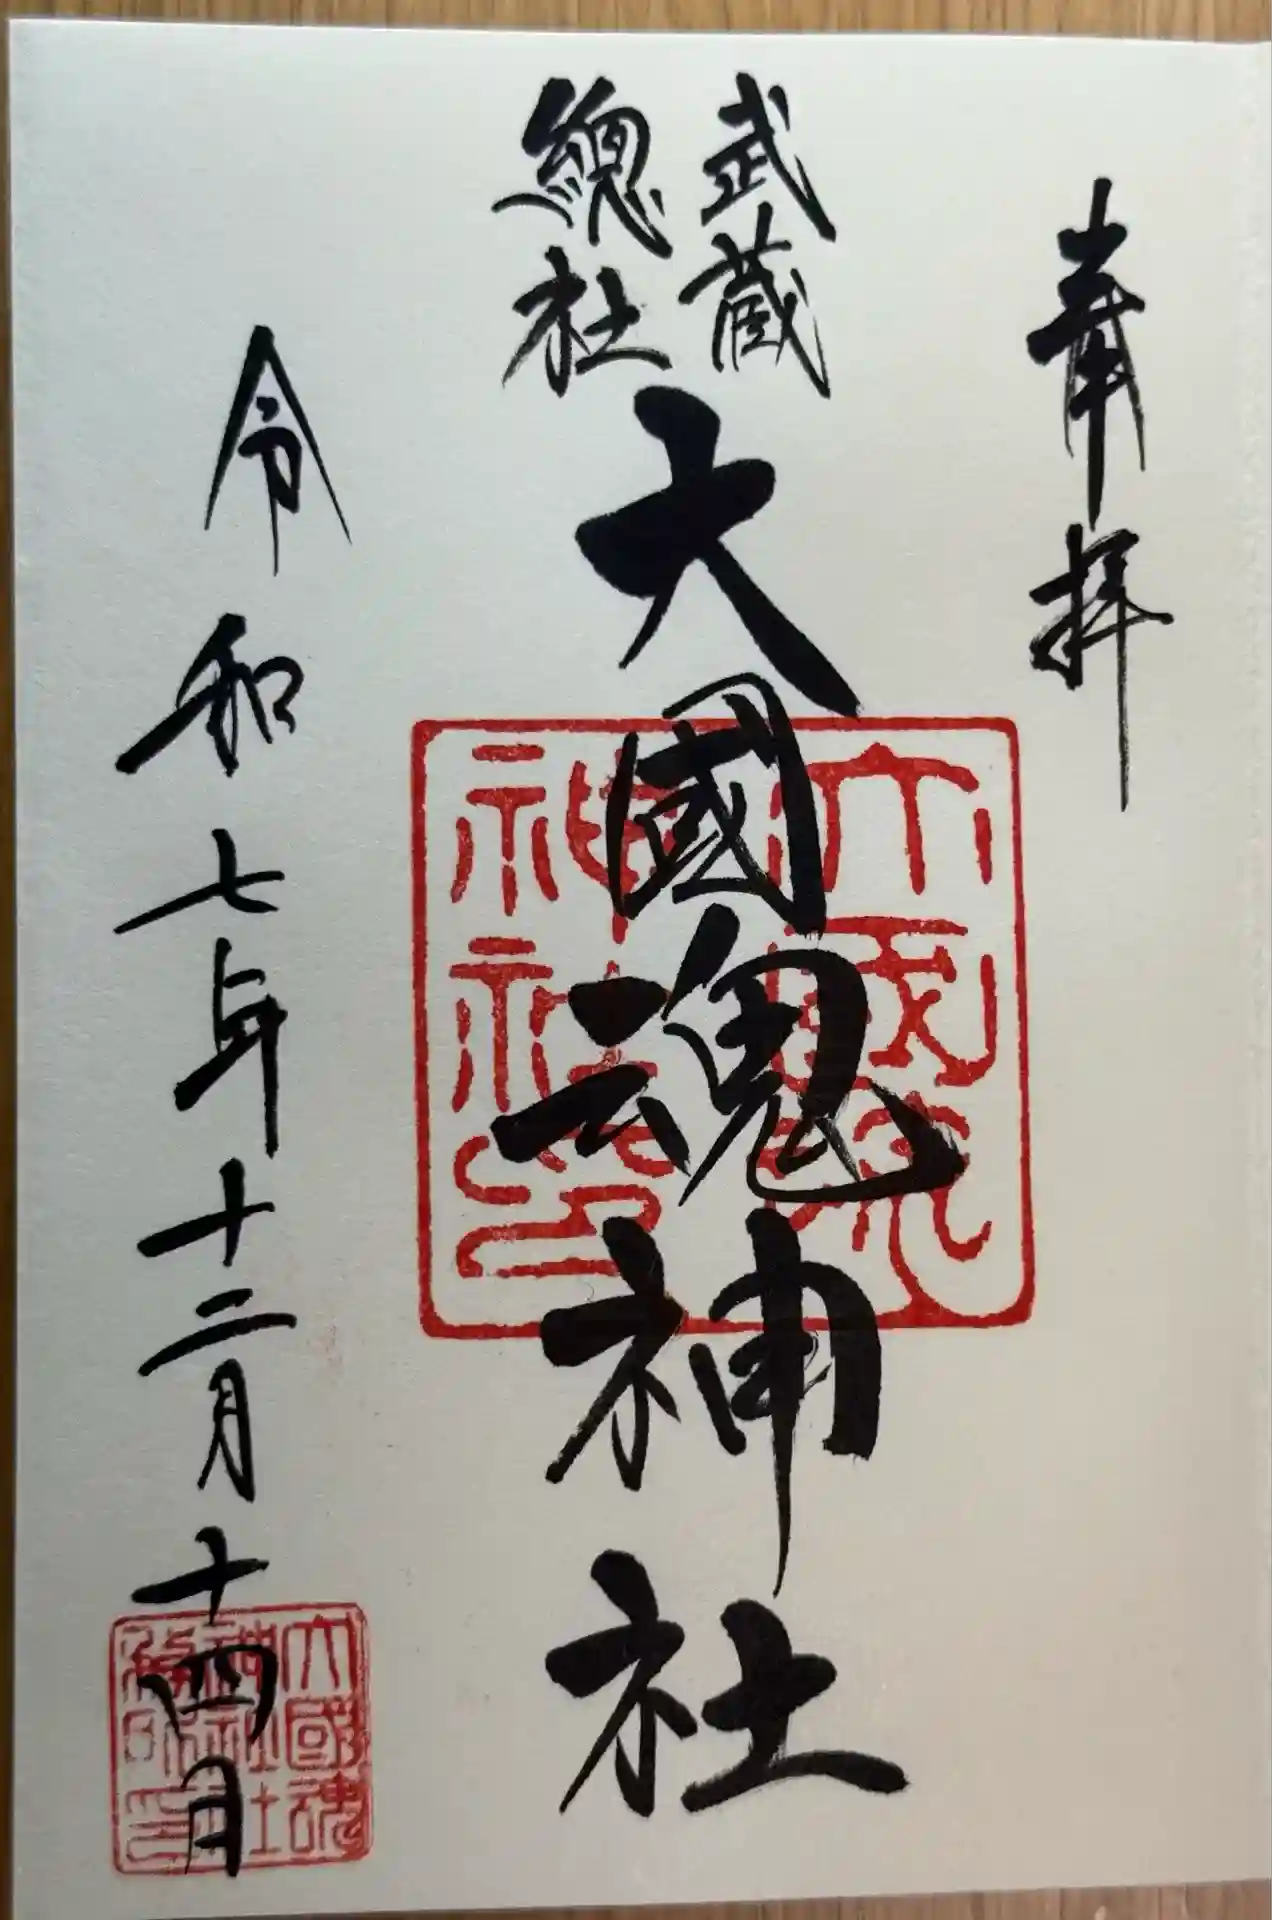 奉拝
武蔵
總社
大國魂神社
令和七年十二月十四日
大國魂
神社印
大國魂
神社社
務所印